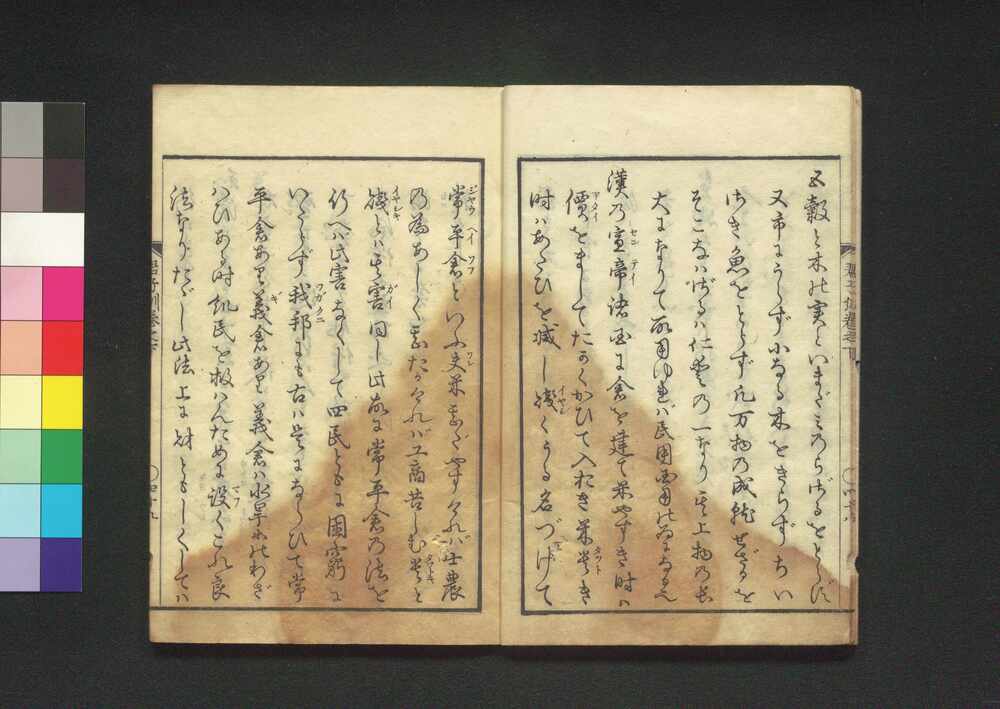 五穀と木の実といまだミのらざるをとらず
又市にうらず小なる木をきらずちい
さき魚をとらず凡万物の成就せざるを
そこなハざるハ仁愛の一なり其上物の長
大になりて取用ゆれバ民用国用の為になる也
漢の宣帝諸国に倉を建て米やすき時ハ
價をましてたかくかひて入おき米貴き
時ハあたひを減し賤くうる名づけて
常平倉といふ夫米甚だやすけれバ士農
の為あしく甚たかけれバ工商苦しむ貴と
賤とハ其害同し此故に常平倉の法を
行へハ此害なくして四民ともに困窮に
いたらず我邦にも古ハ是にならひて常
平倉あり義倉あり義倉ハ水旱等のわざ
ハひある時飢民を救ハんために設くこれ良
法なりたゞし此法上に財ともしくしてハ